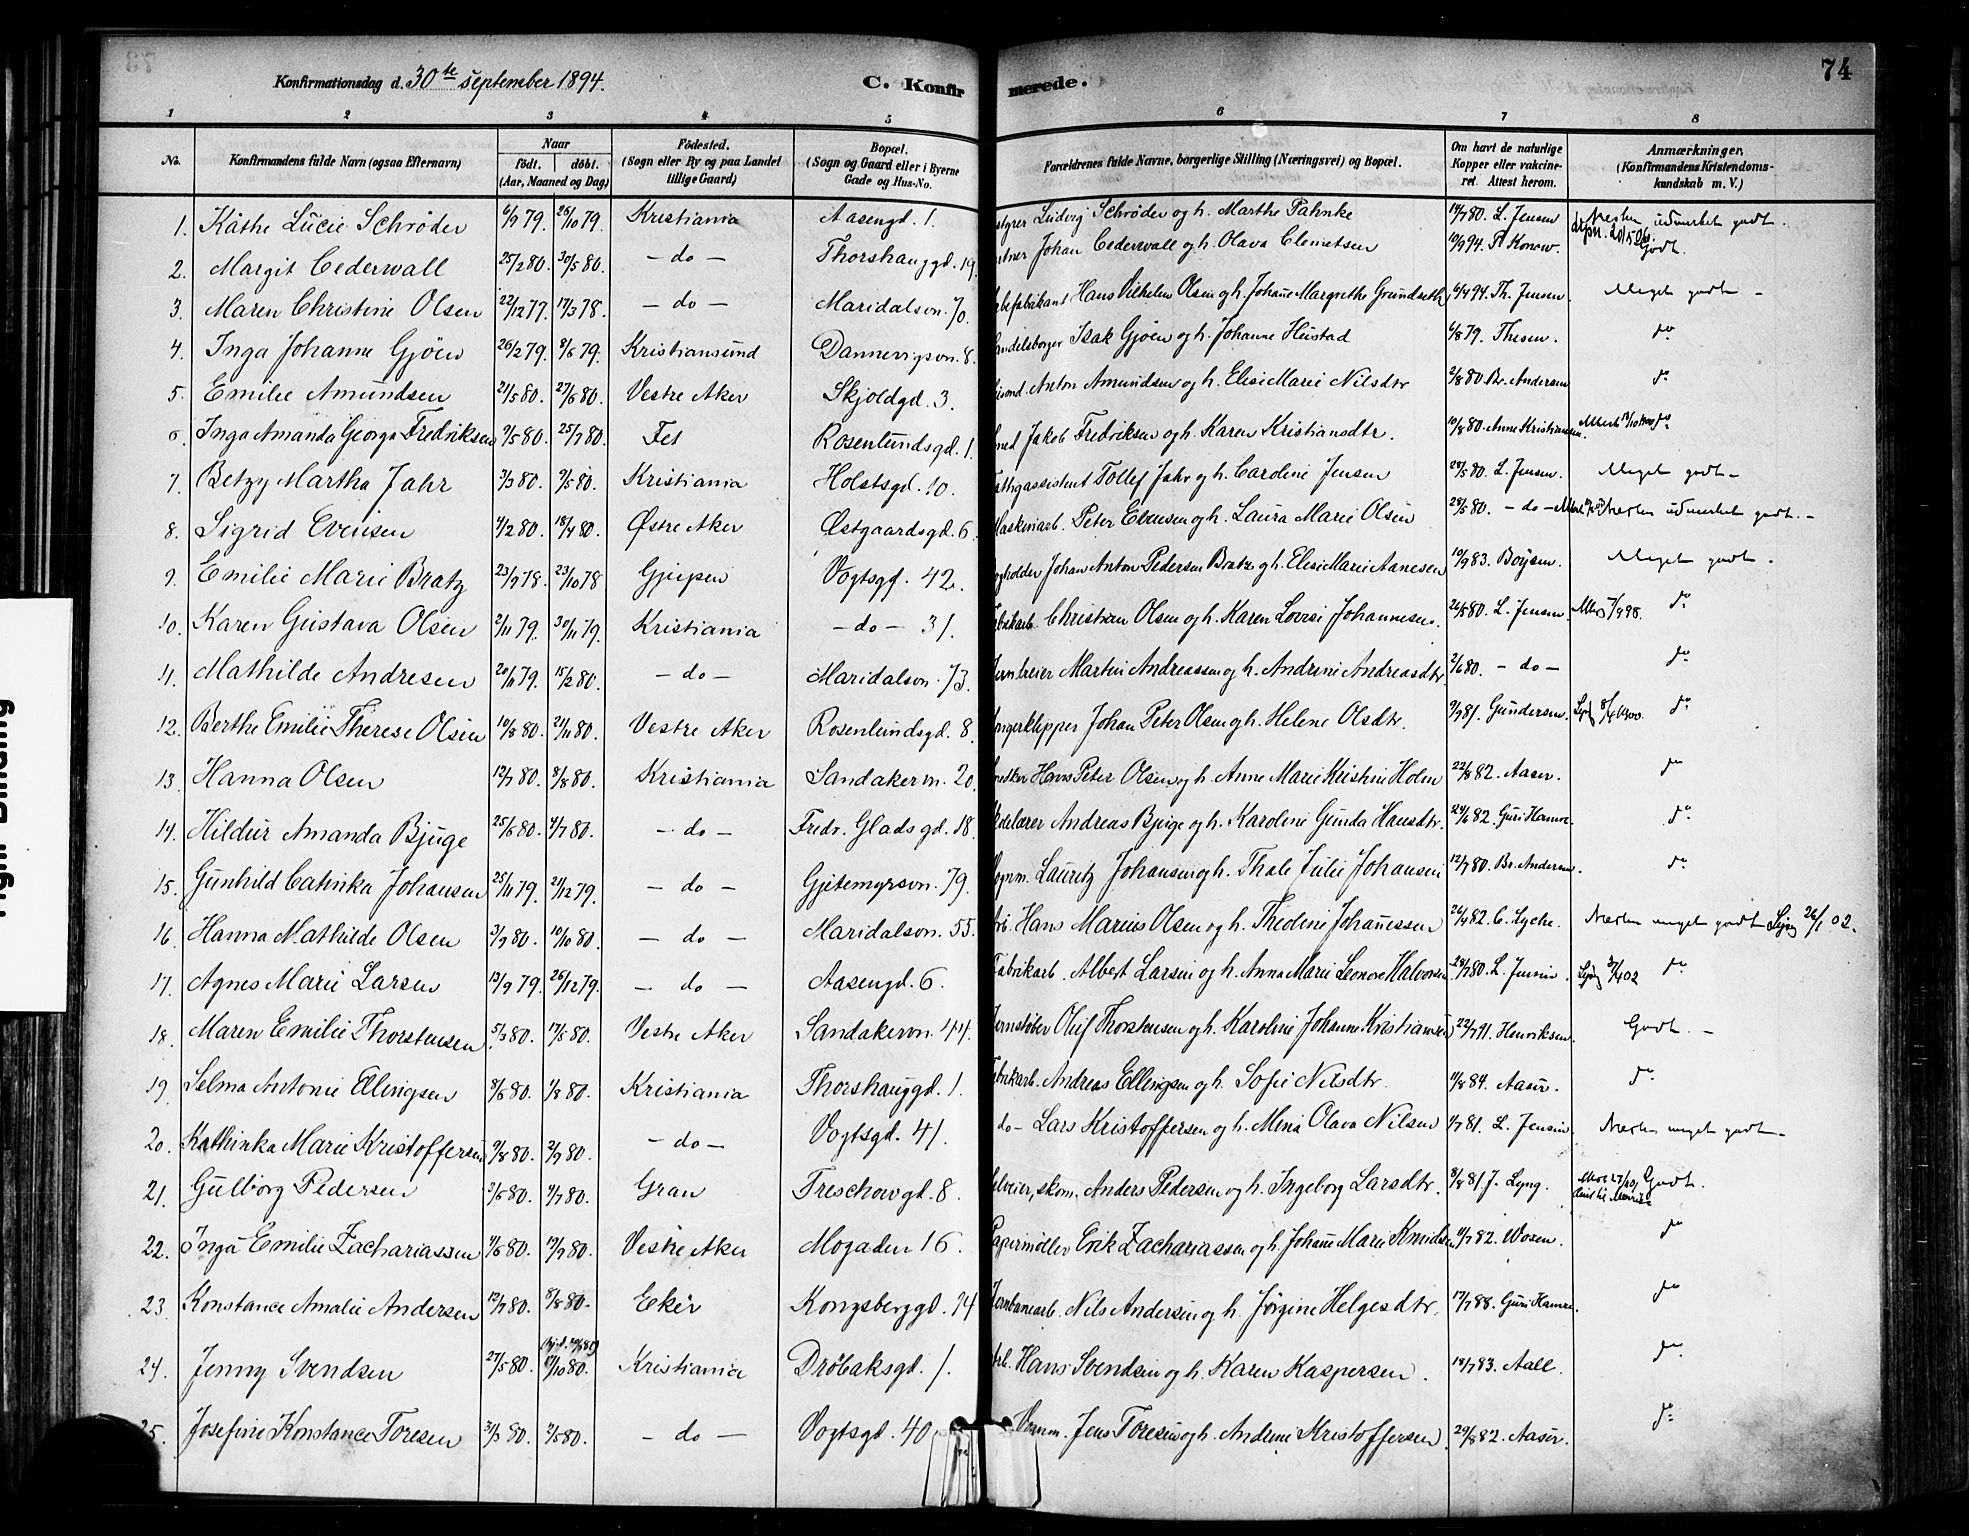 74
Konfirmationsdag d. 30te September 1894.
C. Konfirmerede.
1 2 3 4 5 6 7 8
No. Konfirmandens fulde Navn (ogsaa Efternavn) Naar født. døbt. (Aar, Maaned og Dag) Fødested. (Sogn eller By og paa Landet tillige Gaard) Bopæl. (Sogn og Gaard eller i Byerne Gade og Hus-No. Forældrenes fulde Navne, borgerlige Stilling (Næringsvei) og Bopæl. Om havt de naturlige Kopper eller vakcineret. Attest herom. Anmærkninger, (Konfirmandens Kristendomskundskab m. V.)
1. Käthe Lucie Schrøder 6/9 79. 26/10 79. Kristiania Aasengd. 1. Ludvig Schrøder og h. Marthe Pahnke 14/7 80. L. Jensen Næsten udmerket godt.
2. Margit Cederwall 25/2 80. 30/5 80. — do — Thorshauggd. 19. Johan Cederwall og h. Olava Clemetsen 10/9 94. P. Konow. Godt.
3. Maren Christine Olsen 22/12 77. 17/3 78. — do — Maridalsvn. 70. Hans Vilhelm Olsen og h. Johanne Margrethe Grundseth 6/4 94. Th. Jensen. Meget godt —
4. Inga Johanne Gjøen 26/2 79. 8/6 79. Kristiansund Dannevigsvn. 8. Isak Gjøen og h. Johanne Heustad 6/8 79. Thesen. do
5. Emilie Amundsen 21/5 80. 27/6 80. Vestre Aker Skjoldgd. 3. Anton Amundsen og h. Elise Marie Nilsdtr 2/8 80. Br. Andersen do
6. Inga Amanda Georga Fredriksen 9/5 80. 25/7 80. Fet Rosenlundsgd. 1. Jakob Fredriksen og h. Karen Kristiansdtr. 10/8 80. Anne Kristiansen. do
7. Betzy Martha Jahr 3/3 80. 9/5 80. Kristiania Holstsgd. 10. Tollef Jahr og h. Caroline Jensen 28/5 80. L. Jensen. Meget godt —
8. Sigrid Evensen 4/2 80. 18/4 80. Østre Aker Østgaardsgd. 6. Maskinarb. Peter Evensen og h. Laura Marie Olsen 28/5 80. — do — Næsten udmerket godt. —
9. Emilie Marie Bratz 23/9 78. 23/10 78 Gjerpen Vogtsgd. 42. Johan Anton Pedersen Bratz og h. Elise Marie Aanesen 10/9 83. Boysen. Meget godt.
10. Karen Gustava Olsen 2/11 79. 30/11 79. Kristiania — do — 31. Christian Olsen og h. Karen Lovise Johannesen. 26/5 80. L. Jensen. 7/9 98. do
11. Mathilde Andresen 20/11 79. 15/2 80. — do — Maridalsvn. 73. Martin Andreassen og h. Andrine Andreasdtr. 2/6 80. — do — do
12. Berthe Emilie Therese Olsen 10/8 80. 21/11 80. Vestre Aker Rosenlundsgd. 8. Johan Peter Olsen og h. Helene Olsdtr. 9/7 81. Gundersen. 8/4 1900. do
13. Hanna Olsen 12/7 80. 8/8 80. Kristiania Sandakervn. 20. Hans Peter Olsen og h. Anne Marie Kristine Holm 22/8 82. Aaser. do
14. Hildur Amanda Bjuge 25/6 80. 4/7 80. — do — Fredr. Gladsgd. 18. Andreas Bjuge og h. Karoline Gunda Hansdtr. 24/6 82. Guri Hamre. do
15. Gunhild Cathinka Johansen 25/11 79. 21/12 79. — do — Gjetemyrsvn. 79. Vognm. Lauritz Johansen og h. Thale Julie Johansen 12/7 80. Br. Andersen. do
16. Hanna Mathilde Olsen 3/9 80. 10/10 80. — do — Maridalsvn. 55. Arb. Hans Marius Olsen og h. Theoline Johannessen 26/4 82. C. Lyche. Næsten meget godt 26/1 02.
17. Agnes Marie Larsen 13/9 79. 26/12 79. — do — Aasengd. 6. Fabrikarb. Albert Larsen og h. Anna Marie Leonore Halvorsen 28/7 80. L. Jensen. do
18. Maren Emilie Thorstensen 5/3 80. 17/5 80. Vestre Aker Sandakervn. 44. Jernstøber Oluf Thorstensen og h. Karoline Johanne Kristiansen 22/7 91. Henriksen. Godt. —
19. Selma Antonie Ellingsen 8/6 80. 1/8 80. Kristiania Thorshauggd. 1. Andreas Ellingsen og h. Sofie Nilsdtr. 11/8 84. Aaser. do
20. Kathinka Marie Kristoffersen 9/8 80. 2/9 80. — do — Vogtsgd. 41. do — Lars Kristoffersen og h. Mina Olava Nilsen 4/7 81. L. Jensen. Næsten meget godt —
21. Gulborg Pedersen 3/6 80. 4/7 80. Gran Treschowgd. 8. skom. Anders Pedersen og h. Ingeborg Larsdtr. 8/8 81. J. Lyng. Godt.
22. Inga Emilie Zachariassen 11/6 80. 19/9 80. Vestre Aker Mogaden 16. Papirmøller Erik Zachariassen og h. Johanne Marie Knudsen 11/7 82. Woxen. do
23 Konstance Amalie Andersen 12/7 80. 8/8 80. Eker Kongsberggd. 14 Jernbanearb. Nils Andersen og h. Jørgine Helgesdtr. 17/7 88. Guri Hamre. do
24. Jenny Svendsen 27/5 80. 17/10 80. Kristiania Drøbaksgd. 1. Arb. Hans Svendsen og h. Karen Kaspersen. 18/7 83. Aall. do
25. Josefine Konstance Toresen 31/3 80. 2/5 80. — do — Vogtsgd. 40 Jens Toresen og h. Andrine Kristoffersen. 29/8 82. Aaser. do